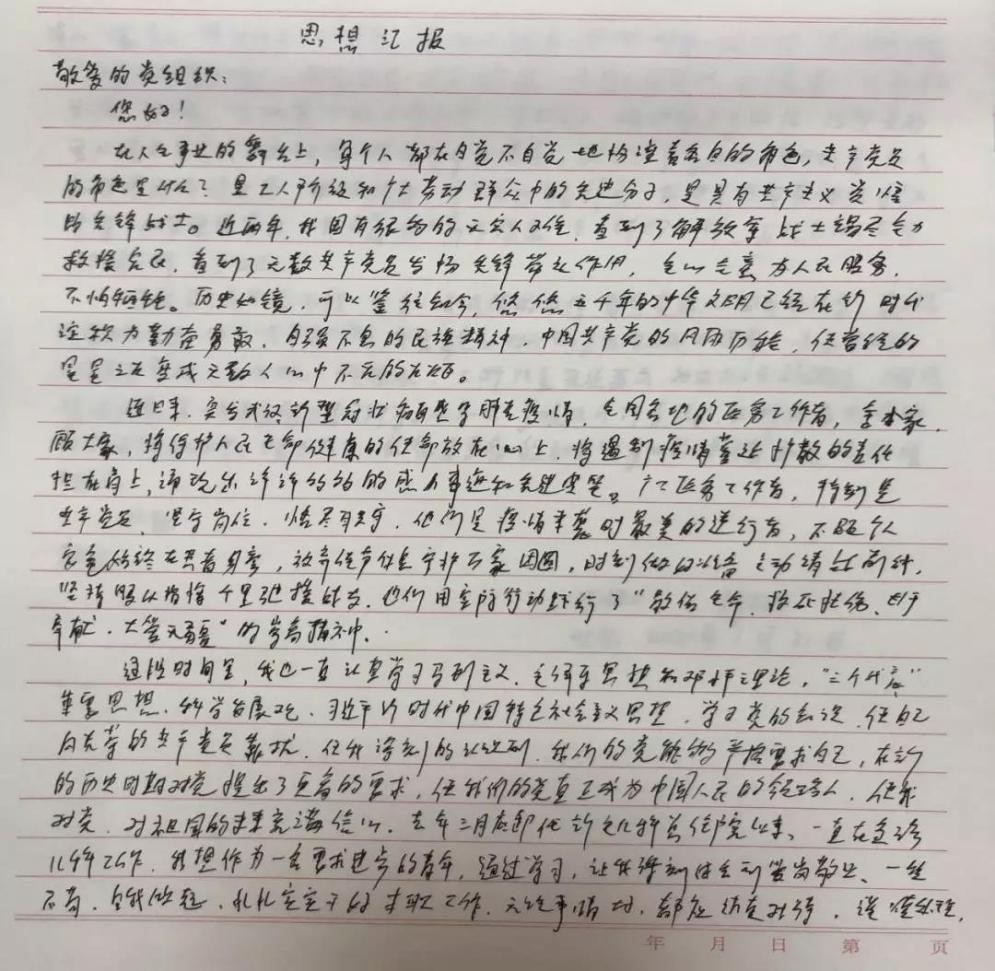 思想汇报
敬爱的党组织：
您好！
在人生事业的舞台上，每个人都在自觉不自觉地扮演着各自的角色，共产党员
的角色是什么？是工人阶级和广大劳动群众中的先进分子，是具有共产主义觉悟
的先锋战士。近两年，我国有很多的天灾人祸，看到了解放军战士竭尽全力
救援灾民，看到了无数共产党员发扬先锋带头作用，全心全意为人民服务，
不怕牺牲。历史如镜，可以鉴往知今，悠悠五千年的中华文明已经在新时代
淀积为勤奋勇敢、自强不息的民族精神，中国共产党的风雨历程，使曾经的
星星之火变成无数人心中不灭的火炬。
近日来，突发我这新型冠状病毒感染肺炎疫情，全国各地的医务工作者，舍小家，
顾大家，将保护人民生命健康的使命放在心上，将遏制疫情蔓延扩散的责任
担在肩上，涌现出许许多多的感人事迹和先进典型。广大医务工作者，特别是
共产党员，坚守岗位，恪尽职守，他们是疫情来袭时最美的逆行者，不顾个人
安危始终在患者身旁，放弃佳节休息守护万家团圆，时刻做好准备主动请战前线，
坚持服从指挥千里驰援战友，他们用实际行动践行了“敬佑生命、救死扶伤、甘于
奉献、大爱无疆”的崇高精神。
这段时间里，我也一直认真学习马列主义、毛泽东思想和邓小平理论，“三个代表”
重要思想，科学发展观，习近平新时代中国特色社会主义思想，学习党的知识，使自己
向先辈的共产党员靠拢，使我深刻的认识到，我们的党能够严格要求自己，在新
的历史时期对党提出了更高的要求，使我们的党真正成为中国人民的领路人，使我
对党、对祖国的未来充满信心。去年三月底卸任新生儿科总住院以来，一直在急诊
儿科工作，我想作为一名要求进步的青年，通过学习，让我深刻体会到爱岗敬业、一丝
不苟、自我做起、扎扎实实干好本职工作，无论事情大小，都应认真对待，谨慎处理，
年 月 日 第 页